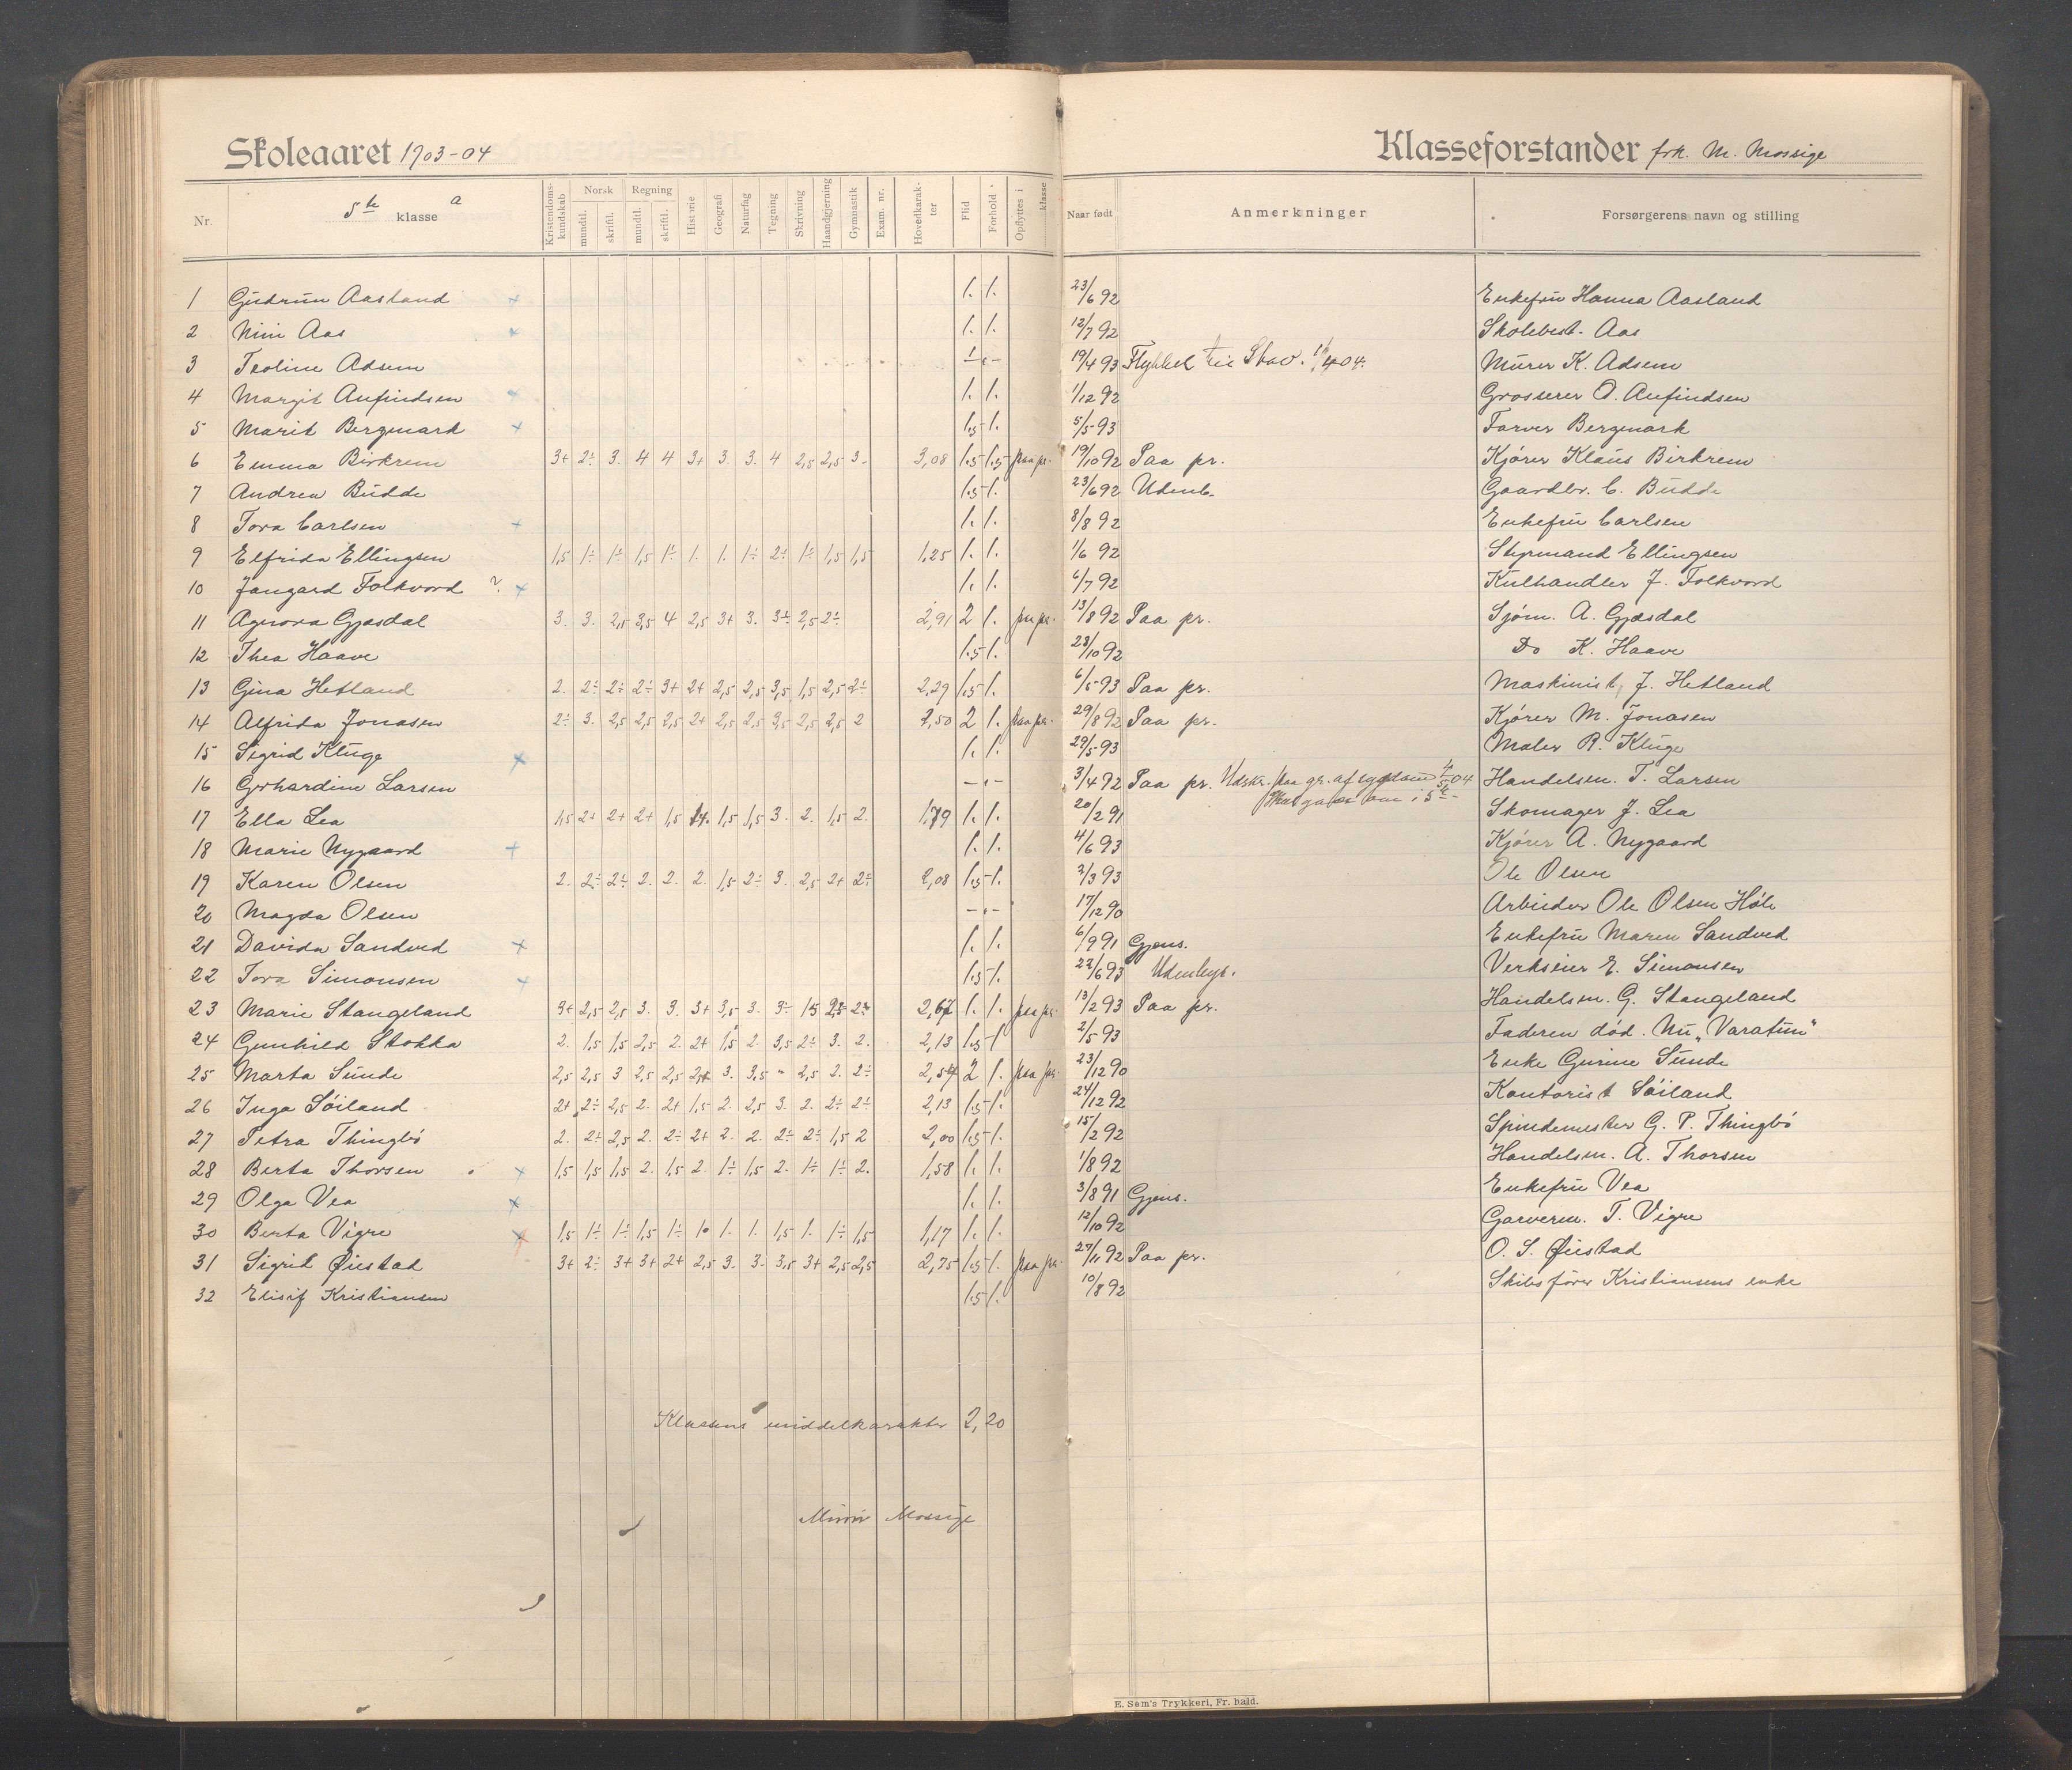 Skoleaaret 1903-04
Klasseforstander frk. M. Mossige
Nr. 5te klasse a Kristendomskundskab Norsk mundtl. skriftl. Regning mundtl. skriftl. Historie Geografi Naturfag Tegning Skrivning Haandgjerning Gymnastik Exam. nr. Hovedkarakter Flid Forhold Opflyttes i klasse Naar født Anmerkninger Forsørgerens navn og stilling
1 Gudrun Aasland 1. 1. 23/6 92 Enkefru Hanna Aasland
2 Nini Aas 1. 1. 12/7 92 Skolebest. Aas
3 Teoline Adsem 19/4 93 Flyttet til Stav. Murer K. Adsem
4 Margit Anfindsen 1. 1. 1/12 92 Grosserer O. Anfindsen
5 Marit Bergmark 1.5 1. 5/5 93 Farver Bergmark
6 Emma Birkrem 3+ 2÷ 3. 4 4 3+ 3. 3. 4 2,5 2,5 3- 3,08 1.5 1.5 paa pr. 19/10 92 Paa pr. Kjører Klaus Birkrem
7 Andrea Budde 1.5 1. 23/6 92 Udenb. Gaardbr. C. Budde
8 Tora Carlsen 1. 1. 8/8 92 Enkefru Carlsen
9 Elfrida Ellingsen 1,5 1÷ 1÷ 1,5 1÷ 1. 1. 1÷ 2÷ 1÷ 1,5 1,5 1,25 1. 1. 1/6 92 Styrmand Ellingsen
10 Jangard Folkvord ? 1. 1. 6/7 92 Kulhandler J. Folkvord
11 Agnora Gjesdal 3. 3. 2,5 3,5 4 2,5 3+ 3. 3÷ 2,5 2÷ 2,91 2 1. paa pr. 13/8 92 Paa pr. Sjøm. A. Gjesdal
12 Thea Haave 1.5 1. 28/10 92 Do K. Haave
13 Gina Hetland 2. 2÷ 2÷ 2÷ 3+ 2+ 2,5 2,5 3,5 1,5 2,5 2÷ 2,29 1.5 1. 6/5 93 Paa pr. Maskinist J. Hetland
14 Alfrida Jonasen 2÷ 3. 2,5 2,5 2,5 2+ 2,5 2,5 3,5 2,5 2,5 2 2,50 2 1. paa pr. 29/8 92 Paa pr. Kjører M. Jonasen
15 Sigrid Kluge 1. 1. 29/5 93 Maler R. Kluge
16 Gerhardine Larsen 3/4 92 Paa pr. Udskr. paa gr. af sygdom 04 Handelsm. T. Larsen
17 Ella Lea 1,5 2+ 2+ 2+ 1,5 1,5 1,5 3. 2. 1,5 2. 1,79 1. 1. 20/2 91 Skomager J. Lea
18 Marie Nygaard 1. 1. 4/6 93 Kjører A. Nygaard
19 Karen Olsen 2. 2÷ 2÷ 2. 2. 2. 1,5 2÷ 3. 2,5 2+ 2÷ 2,08 1.5 1. 3/3 93 Ole Olsen
20 Magda Olsen 17/12 90 Arbieder Ole Olsen Høle
21 Davida Sandved 1. 1. 6/9 91 Gjens. Enkefru Maren Sandved
22 Tora Simonsen 1.5 1. 22/6 93 Udenbys. Verkseier E. Simonsen
23 Marie Stangeland 3+ 2,5 2,5 3. 3. 3+ 3,5 3. 3÷ 2,67 1. 1. paa pr. 13/2 93 Paa pr. Handelsm. G. Stangeland
24 Gunhild Stokka 2. 1,5 1,5 2,5 2. 2+ 1,5 2. 3,5 2÷ 3. 2. 2,13 1.5 1 2/5 93 Faderen død. Nu „Varatun"
25 Marta Sunde 2,5 2,5 3 2,5 2,5 3. 3,5 - 2,5 2. 2÷ 2 1. paa pr. 23/12 90 Enke Gurine Sunde
26 Inga Søiland 2+ 2÷ 2,5 2. 2+ 1,5 2. 2,5 3. 2. 2÷ 2÷ 2,13 1.5 1. 24/12 92 Kontorist Søiland
27 Petra Thingbø 2. 2+ 2,5 2. 2÷ 2+ 2. 2. 2÷ 2÷ 1,5 2 2,00 1.5 1. 15/2 92 Spindemester G. P. Thingbø
28 Berta Thorsen 1,5 1,5 1,5 2. 1,5 2. 1÷ 1,5 2. 1÷ 1÷ 2. 1,58 1. 1. 1/8 92 Handelsm. A. Thorsen
29 Olga Vea 1. 1. 3/8 91 Gjens. Enkefru Vea
30 Berta Vigre 1,5 1÷ 1÷ 1,5 1÷ 1. 1. 1. 1,5 1. 1÷ 1,5 1,17 1. 1. 12/10 92 Garverm. T. Vigre
31 Sigrid Øiestad 3+ 2÷ 3+ 3+ 2+ 2,5 3. 3. 3,5 3+ 2,5 2,5 2,75 1.5 1. paa pr. 27/11 92 Paa pr. O. S. Øiestad
32 Elisif Kristiansen 1.5 1. 10/8 92 Skibsfører Kristiansens enke
Klassens middelkarakter 2,20
Mossige
E. Sem's Trykkeri, Fr. hald.